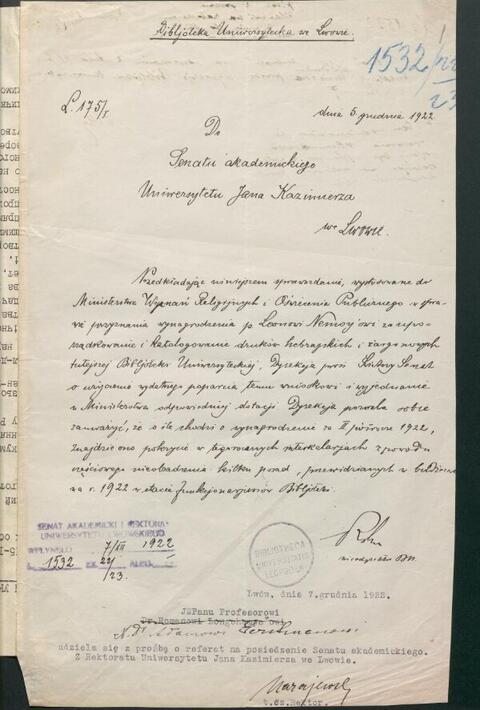 Bibljoteka Uniwersytecka we Lwowie.
1532/22
23
L. 175/I
dnia 5 grudnia 1922
Do
Senatu akademickiego
Uniwersytetu Jana Kazimierza
we Lwowie.
Przedkładając niniejszem sprawozdanie, wystosowane do
Ministerstwa Wyznań Religijnych i Oświecenia Publicznego w spra-
wie przyznania wynagrodzenia p. Leonowi Nemoy'owi za upo-
rządkowanie i katalogowanie druków hebrajskich i żargonowych
tutejszej Bibljoteki Uniwersyteckiej, Dyrekcja prosi Świetny Senat
o użyczenie wydatnego poparcia temu wnioskowi i wyjednanie
w Ministerstwie odpowiedniej dotacji. Dyrekcja pozwala sobie
zauważyć, że o ile chodzi o wynagrodzenie za II półrocze 1922,
znajdzie ono pokrycie w interkalarjach z powodu
częściowego nieobsadzenia kilku posad, przewidzianych w budżecie
na r. 1922 w etacie funkcjonarjuszów Bibljoteki.
SENAT AKADEMICKI I REKTORAT
UNIWERSYTETU LWOWSKIEGO
WPŁYNĘŁO 7/XII 1922
L. 1532 EX 22/23. ALEG.
BIBLIOTHECA
UNIVERSITATIS
LEOPOL.
Lwów, dnia 7.grudnia 1922.
JWPanu Profesorowi
Dr.Romanowi Longchamps
Dr Adamowi Gerstmanowi
udziela się z prośbą o referat na posiedzenie Senatu akademickiego.
Z Rektoratu Uniwersytetu Jana Kazimierza we Lwowie.
t.cz.Rektor.